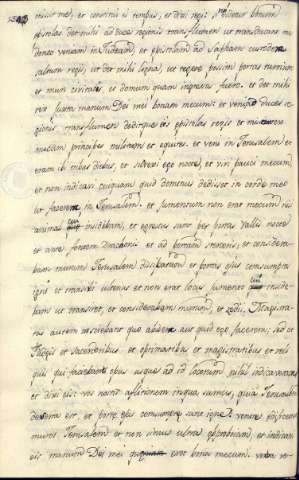 mitteret me, et constitui ei tempus, et dixi regi: si videtur bonum
epistolas det mihi ad duces regionis trans flumen ut transducant me
donec veniam in Judæam, et epistolam ad Asaph custodem
saltus regis, ut det mihi ligna, ut tegere possim portas turris domus
et muri civitatis, et domum quam ingressus fuero. et dedit mihi
rex juxta manum Dei mei bonam mecum. et veni ad duces re
gionis trans flumen dedique eis epistolas regis et miserat rex
mecum principes militum et equites. et veni in Jerusalem et
eram ibi tribus diebus, et surrexi ego nocte, et viri pauci mecum
et non indicavi cuiquam quid Dominus dedisset in corde meo
ut facerem in Jerusalem. et jumentum non erat mecum nisi
animal cui insidebam, et egressus sum per portam vallis nocte
et ante fontem Draconis et ad portam stercoris, et consídera
bam murum Jerusalem dissipatum et portas ejus consumptas
igni et transivi ulterius et non erat locus jumento cui inside
bam ut transiret, et considerabam murum, et redii. Magistra
tus autem nesciebant quo abiissem aut quid ego facerem; sed et
Judæis et sacerdotibus et optimatibus et magistratibus et reli
quis qui faciebant opus usque ad id locorum nihil indicaveram
et dixi eis: vos nostis afflictionem in qua sumus, quia Jerusalem
deserta est, et portæ ejus consumptæ sunt igne. venite ædificemus
muros Jerusalem et non simus ultra opprobrium, et indicavi
eis manum Dei mei quod esset bona mecum. verba re-